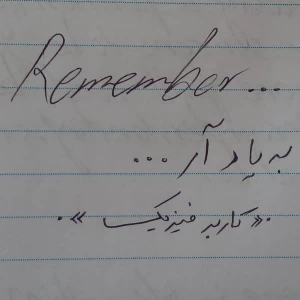 Remember...
به یاد آر ...
.«کاربر فیزیکی».